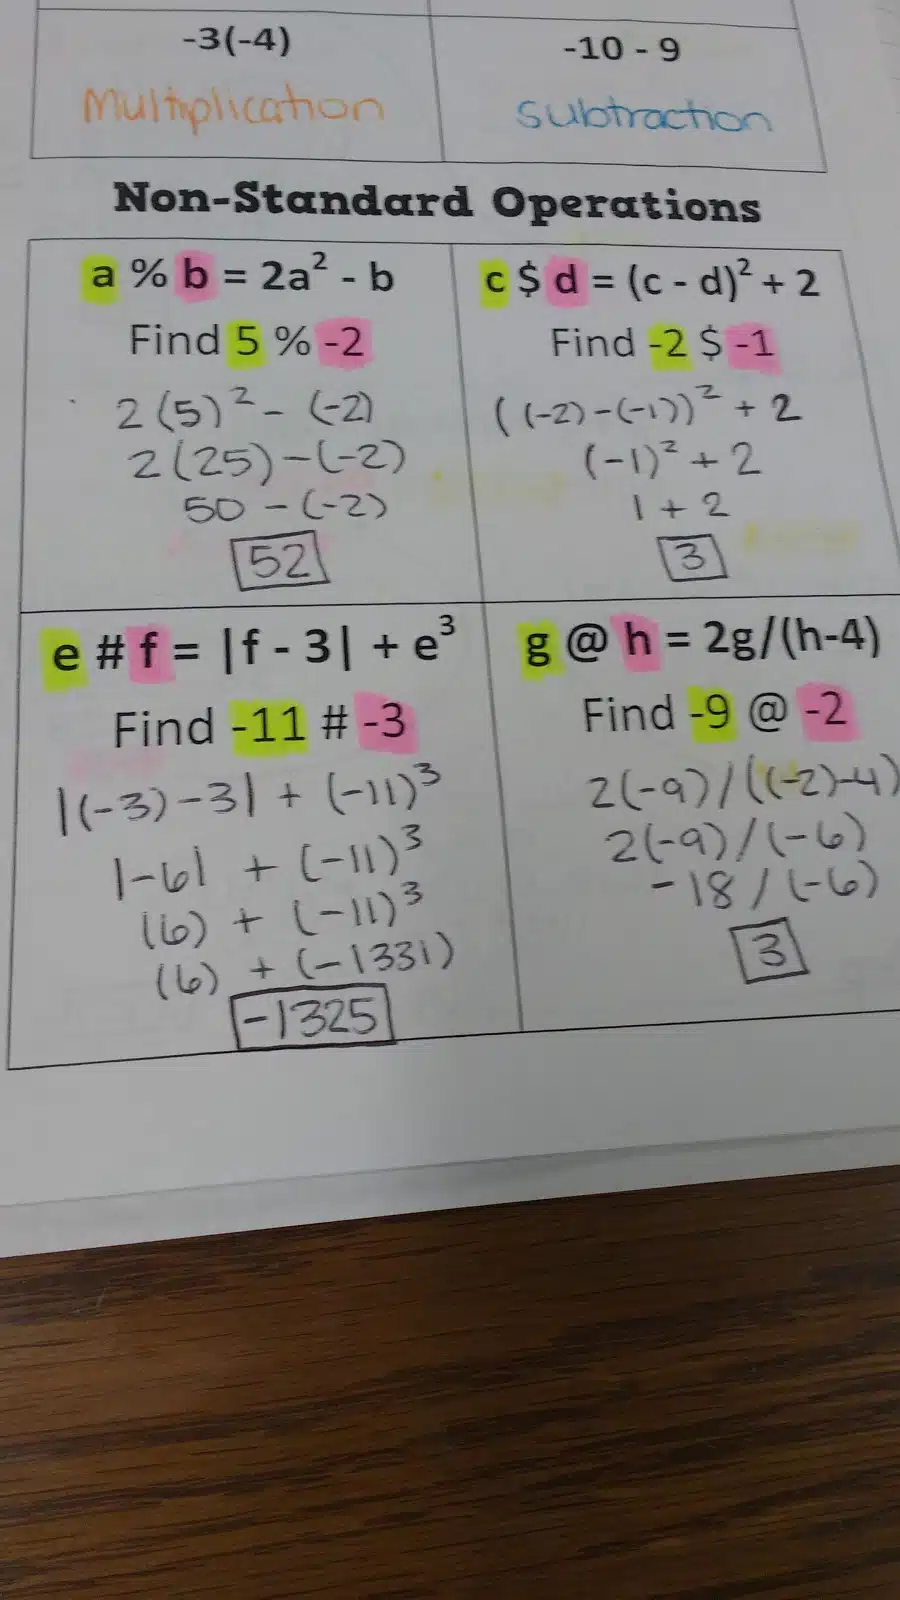 -3(-4)
Multiplication
-10 - 9
subtraction
Non-Standard Operations
a % b = 2a² - b
Find 5 % -2
2(5)² - (-2)
2(25) - (-2)
50 - (-2)
52
c $ d = (c - d)² + 2
Find -2 $ -1
((-2) - (-1))² + 2
(-1)² + 2
1 + 2
3
e # f = |f - 3| + e³
Find -11 # -3
|(-3) - 3| + (-11)³
|-6| + (-11)³
(6) + (-11)³
(6) + (-1331)
-1325
g @ h = 2g/(h-4)
Find -9 @ -2
2(-9)/((-2)-4)
2(-9)/(-6)
-18/(-6)
3